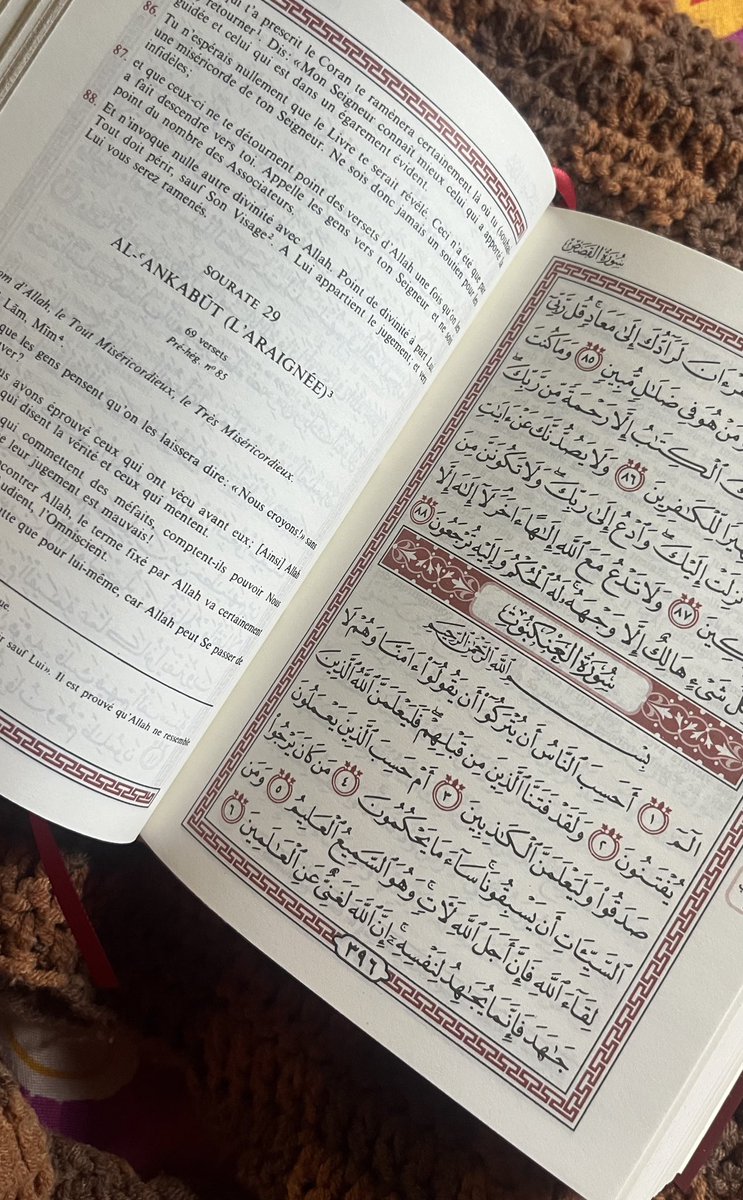 qui t'a prescrit le Coran te ramènera certainement là où tu (souhai
retourner¹. Dis: «Mon Seigneur connaît mieux celui qui a apporté
guidée et celui qui est dans un égarement évident.
86. Tu n'espérais nullement que le Livre te serait révélé. Ceci n'a été que par
une miséricorde de ton Seigneur. Ne sois donc jamais un soutien pour les
infidèles;
87. et que ceux-ci ne te détournent point des versets d'Allah une fois qu'on les
a fait descendre vers toi. Appelle les gens vers ton Seigneur et ne sois
point du nombre des Associateurs.
88. Et n'invoque nulle autre divinité avec Allah. Point de divinité à part Lui.
Tout doit périr, sauf Son Visage². A Lui appartient le jugement; et vers
Lui vous serez ramenés.
SOURATE 29
AL-ʿANKABŪT (L'ARAIGNÉE)³
69 versets
Pré-hég. n° 85
d'Allah, le Tout Miséricordieux, le Très Miséricordieux.
Lām, Mīm⁴.
que les gens pensent qu'on les laissera dire: «Nous croyons!» sans
ver?
avons éprouvé ceux qui ont vécu avant eux; [Ainsi] Allah
qui disent la vérité et ceux qui mentent.
qui commettent des méfaits, comptent-ils pouvoir Nous
leur jugement est mauvais!
contrer Allah, le terme fixé par Allah va certainement
udient, l'Omniscient.
que pour lui-même, car Allah peut Se passer de
que.
sauf Lui». Il est prouvé qu'Allah ne ressemble
سُورَةُ القَصَصِ
لَرَآدُّكَ إِلَىٰ مَعَادٍ ۚ قُل رَّبِّىٓ
مَنْ هُوَ فِى ضَلَٰلٍ مُّبِينٍ ٨٥ وَمَا كُنتَ
ٱلْكِتَٰبُ إِلَّا رَحْمَةً مِّن رَّبِّكَ ۖ
لِّلْكَٰفِرِينَ ٨٦ وَلَا يَصُدُّنَّكَ عَنْ ءَايَٰتِ
إِلَيْكَ ۖ وَٱدْعُ إِلَىٰ رَبِّكَ ۖ وَلَا تَكُونَنَّ مِنَ
٨٧ وَلَا تَدْعُ مَعَ ٱللَّهِ إِلَٰهًا ءَاخَرَ ۘ لَآ إِلَٰهَ إِلَّا
شَىْءٍ هَالِكٌ إِلَّا وَجْهَهُۥ ۚ لَهُ ٱلْحُكْمُ وَإِلَيْهِ تُرْجَعُونَ ٨٨
سُورَةُ العَنكَبُوتِ
بِسْمِ ٱللَّهِ ٱلرَّحْمَٰنِ ٱلرَّحِيمِ
الٓمٓ ١ أَحَسِبَ ٱلنَّاسُ أَن يُتْرَكُوٓا۟ أَن يَقُولُوٓا۟ ءَامَنَّا وَهُمْ لَا
يُفْتَنُونَ ٢ وَلَقَدْ فَتَنَّا ٱلَّذِينَ مِن قَبْلِهِمْ ۖ فَلَيَعْلَمَنَّ ٱللَّهُ ٱلَّذِينَ
صَدَقُوا۟ وَلَيَعْلَمَنَّ ٱلْكَٰذِبِينَ ٣ أَمْ حَسِبَ ٱلَّذِينَ يَعْمَلُونَ
ٱلسَّيِّـَٔاتِ أَن يَسْبِقُونَا ۚ سَآءَ مَا يَحْكُمُونَ ٤ مَن كَانَ يَرْجُوا۟
لِقَآءَ ٱللَّهِ فَإِنَّ أَجَلَ ٱللَّهِ لَءَاتٍ ۚ وَهُوَ ٱلسَّمِيعُ ٱلْعَلِيمُ ٥ وَمَن
جَٰهَدَ فَإِنَّمَا يُجَٰهِدُ لِنَفْسِهِۦٓ ۚ إِنَّ ٱللَّهَ لَغَنِىٌّ عَنِ ٱلْعَٰلَمِينَ ٦
٣٩٦